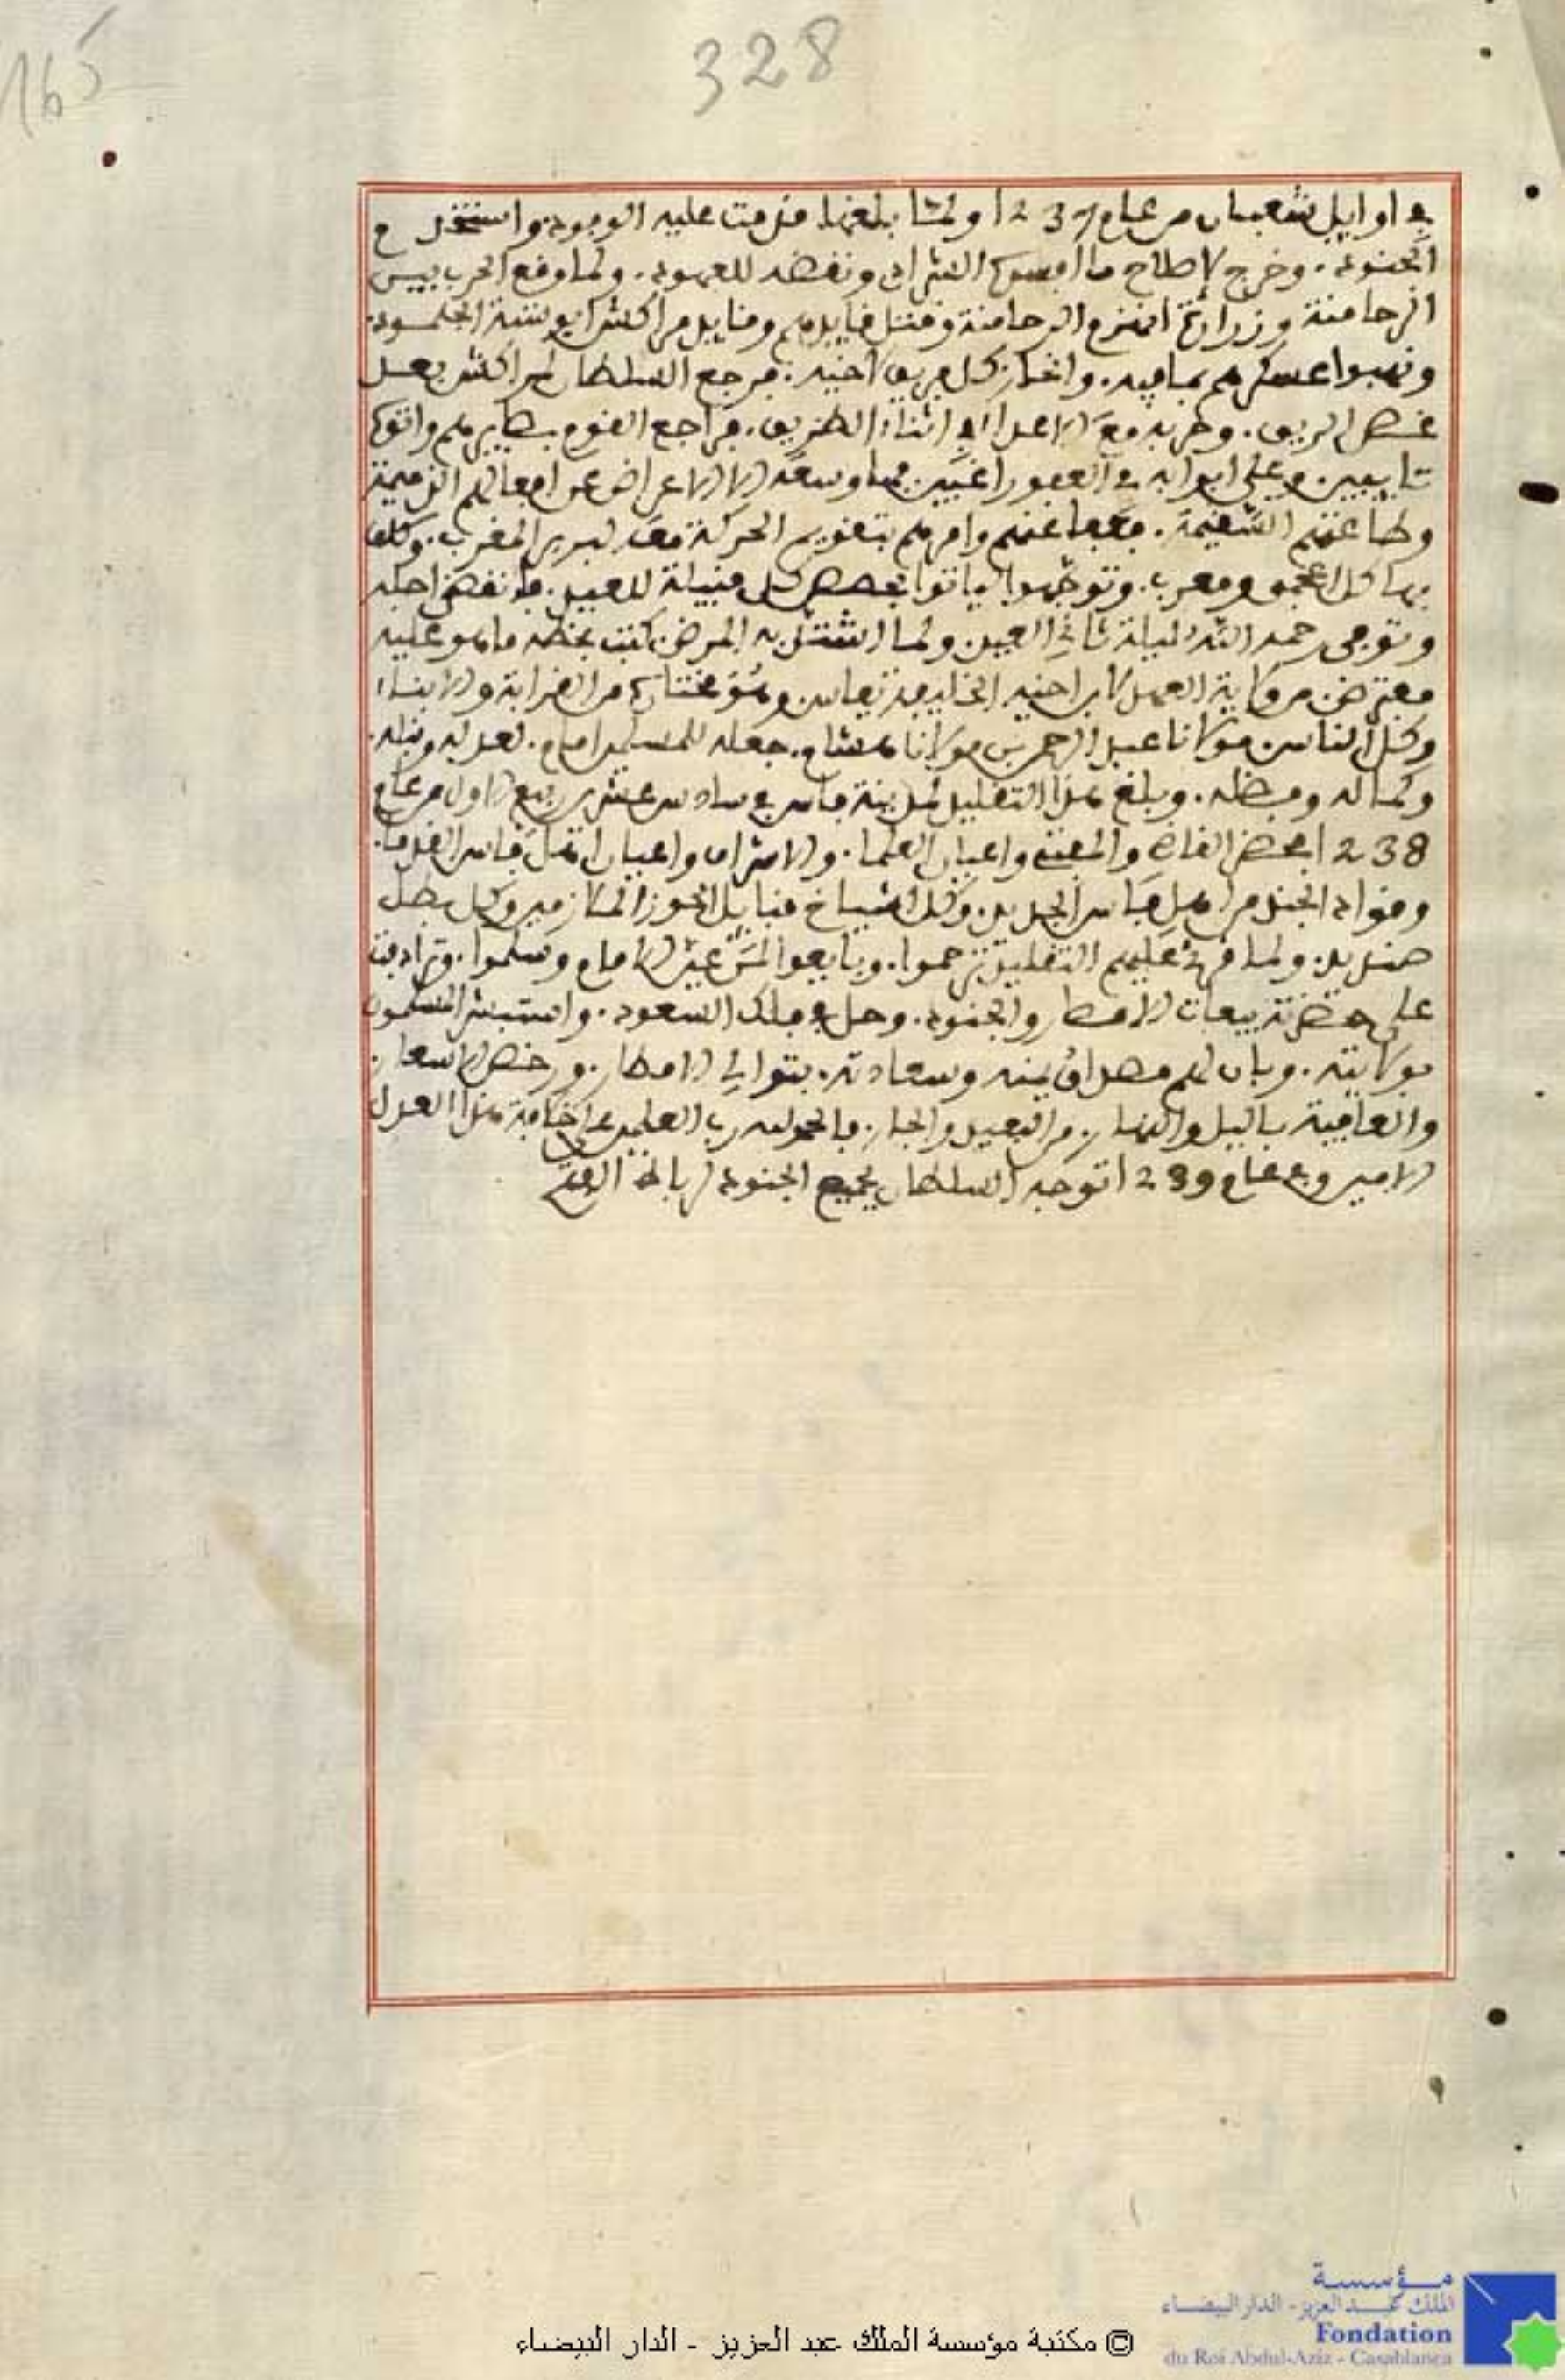 165
328
في اوايل شعبان من عام 1237 ولما بلغها قدمت عليه الوفود واستنفر
الجنود. وخرج لإصلاح ما افسده الشراد ونقضه للعهود. ولما وقع الحرب بين
الرحامنة وزرارة انهزم الرحامنة وقتل قايدهم وقايد مراكش ابو ستة الجلمود.
ونهبوا عسكرهم بما فيه. وانحاز كل فريق لأخيه. فرجع السلطان لمراكش بعد
غصص الريق. وحربه مع الاعدا في اثناء الطريق. فراجع القوم بصايرهم واتوه
تايبين وعلى ابوابه في العفو راغبين فما وسعه الا الاعراض عن افعالهم الذميمة
وطاعتهم السقيمة. فعفا عنهم وامرهم بتقويم الحركة معه لبربر المغرب. وكلف
بها كل اعجم ومعرب. وتوجهوا لياتوا بحصص كل قبيلة للعيد. فانقضى اجله
وتوفي رحمه الله ليلة ثاني العيد ولما اشتد به المرض كتب بخطه ما هو عليه
مفترض من ولاية العهد لابن اخيه الخليفة بفاس وهو مختاره من القرابة والابناء
وكل الناس مولانا عبد الرحمن بن مولانا هشام. جعله للمسلمين امام. لعدله ونبله.
وكماله وفضله. وبلغ هذا التقليد لمدينة فاس في سادس عشري ربيع الاول من عام
1238 بمحضر القاضي والمفتي واعيان العلما. والاشراف واعيان اهل فاس القدما.
وقواد الجند من اهل فاس الجديد. وكل اشياخ قبايل الحوز الملازمين وكل بطل
صنديد. ولما قرئ عليهم التقليد ترحموا. وبايعوا لمن عين الامام وسلموا. وترادفت
على حضرته بيعات الامصار والجنود. وحل في فلك السعود. واستبشر المسلمون
بولايته. وبان لهم مصداق يمنه وسعادته. بتوالي الامطار. ورخص الاسعار.
والعافية بالليل والنهار. من البعيد والجار. فالحمد لله رب العلمين على خلافة هذا العدل
الامير وفي عام 1239 توجه السلطان بجميع الجنود لرباط الفتح
© مكتبة مؤسسة الملك عبد العزيز - الدار البيضاء
مؤسسة
الملك عبد العزيز - الدار البيضاء
Fondation
du Roi Abdul-Aziz - Casablanca